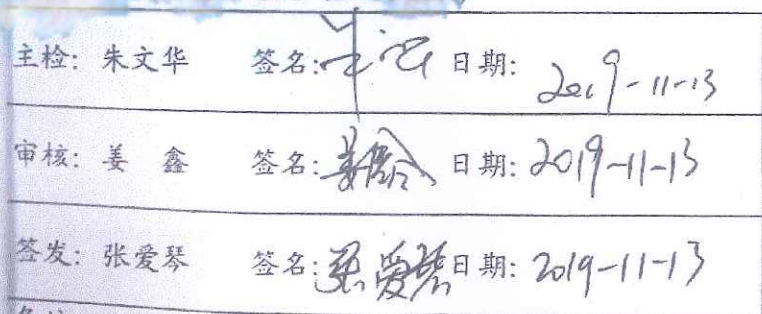 主检: 朱文华 签名: 日期: 2019-11-13
审核: 姜 鑫 签名: 姜鑫 日期: 2019-11-13
签发: 张爱琴 签名: 张爱琴 日期: 2019-11-13